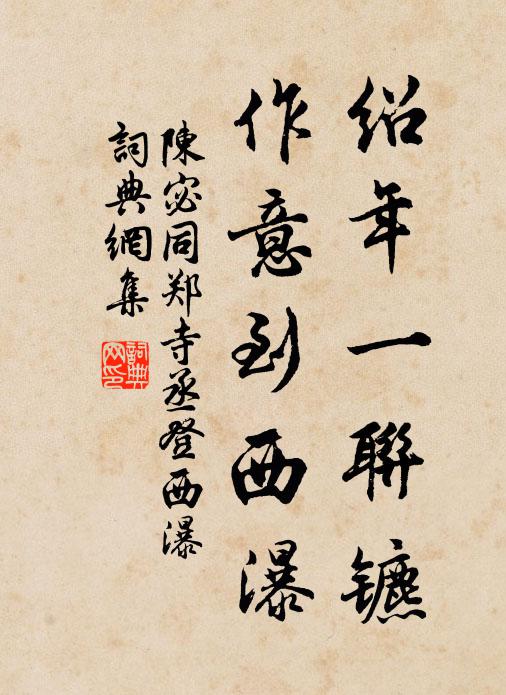 绍年一聯镳
作意到西瀑
陳宓同郑寺丞登西瀑
詞典網集
詞典网印